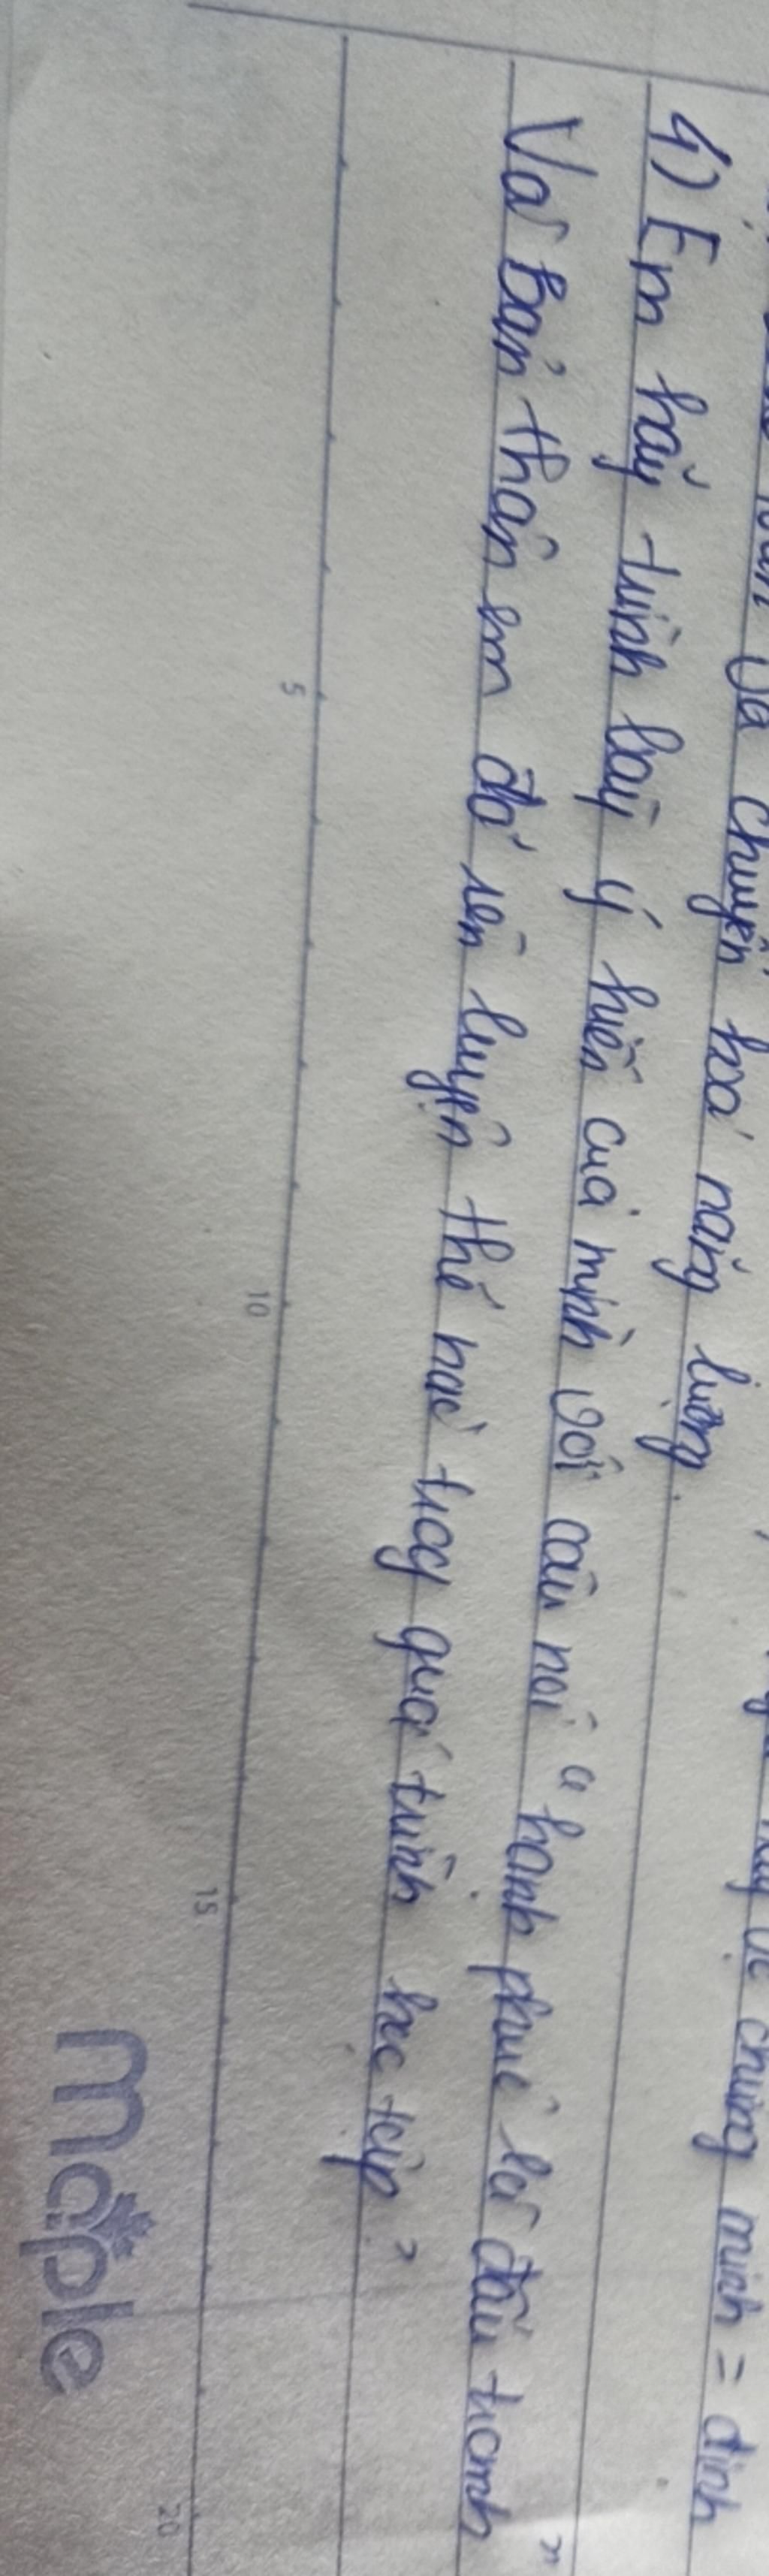 và chuyển hoá năng lượng. chứng minh = định
4) Em hãy trình bày ý kiến của mình với câu nói "hạnh phúc là đấu tranh"
Và bản thân em đã rèn luyện thế nào trog quá trình học tập?
5 10 15 20
maple